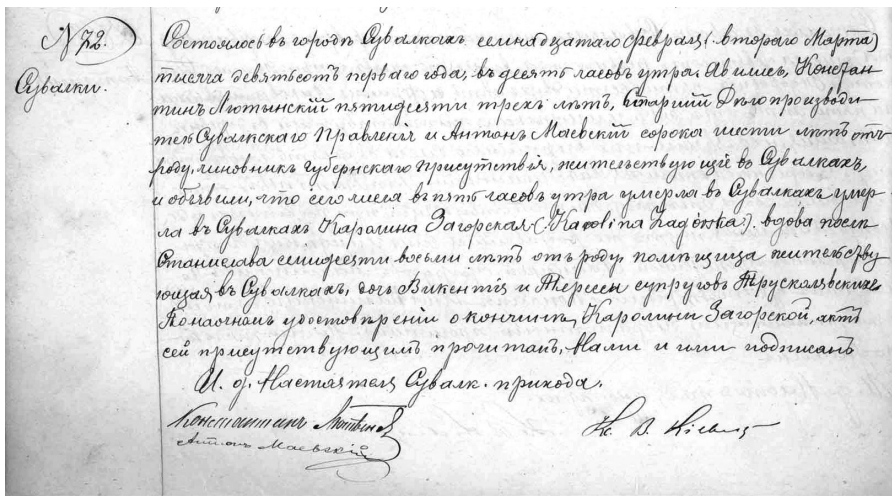 N 72.
Сувалки.
Состоялось въ городѣ Сувалкахъ семнадцатаго Февраля (втораго Марта)
тысяча девятьсотъ перваго года, въ десять часовъ утра. Явились, Констан-
тинъ Лютынскій пятидесяти трехъ лѣтъ, Старшій Дѣлопроизводи-
тель Сувалкскаго Правленія и Антонъ Маевскій сорока шести лѣтъ отъ
роду, чиновникъ Губернскаго Присутствія, жительствующіе въ Сувалкахъ,
и объявили, что сего числа въ пять часовъ утра умерла въ Сувалкахъ умер-
ла въ Сувалкахъ Каролина Загорская (Karolina Zagórska). вдова послѣ
Станислава семидесяти восьми лѣтъ отъ роду, помѣщица жительству
ющая въ Сувалкахъ, дочь Викентія и Терессы супруговъ Трусколявскихъ
По наочномъ удостовѣреніи о кончинѣ, Каролины Загорской, актъ
сей присутствующимъ прочитанъ, Нами и ими подписанъ
И. д. Настоятеля Сувалк. прихода.
Константинъ
Антонъ Маевскій